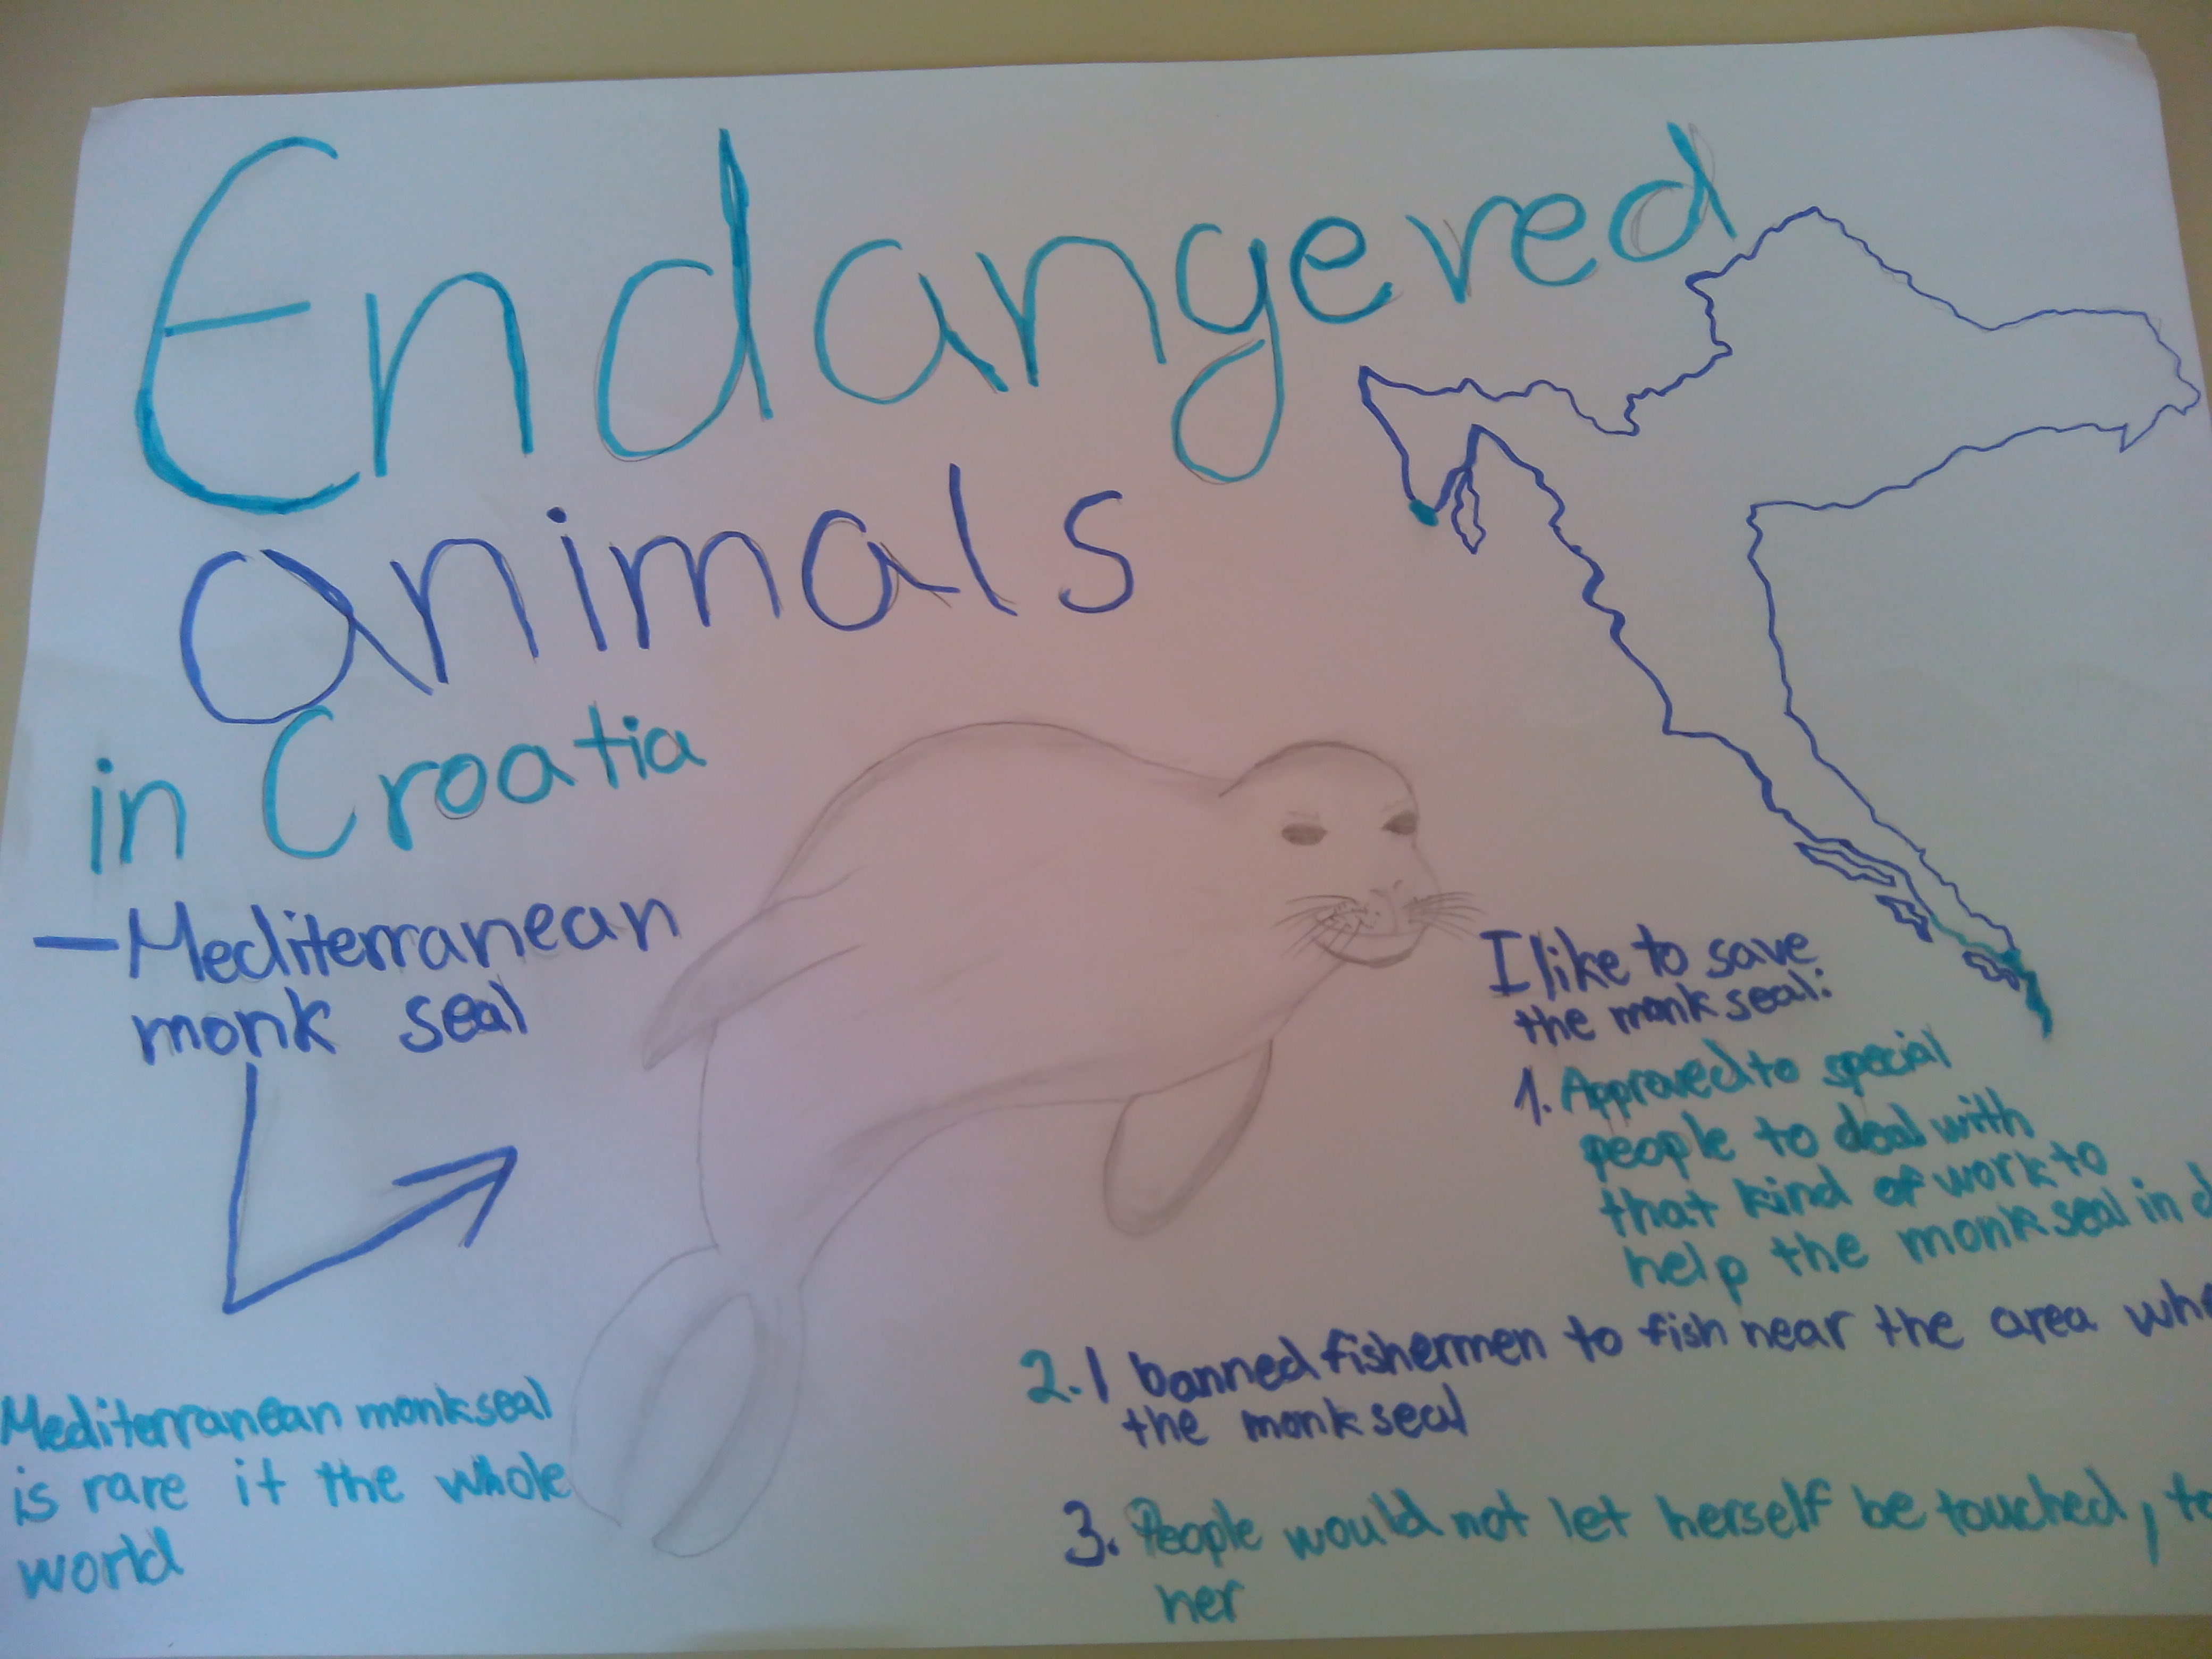 Endangered
animals
in Croatia
— Mediterranean
monk seal
Mediterranean monk seal
is rare it the whole
world
I like to save
the monk seal:
1. Approved to special
people to deal with
that kind of work to
help the monk seal in
2. I banned fishermen to fish near the area
the monk seal
3. People would not let herself be touched,
her